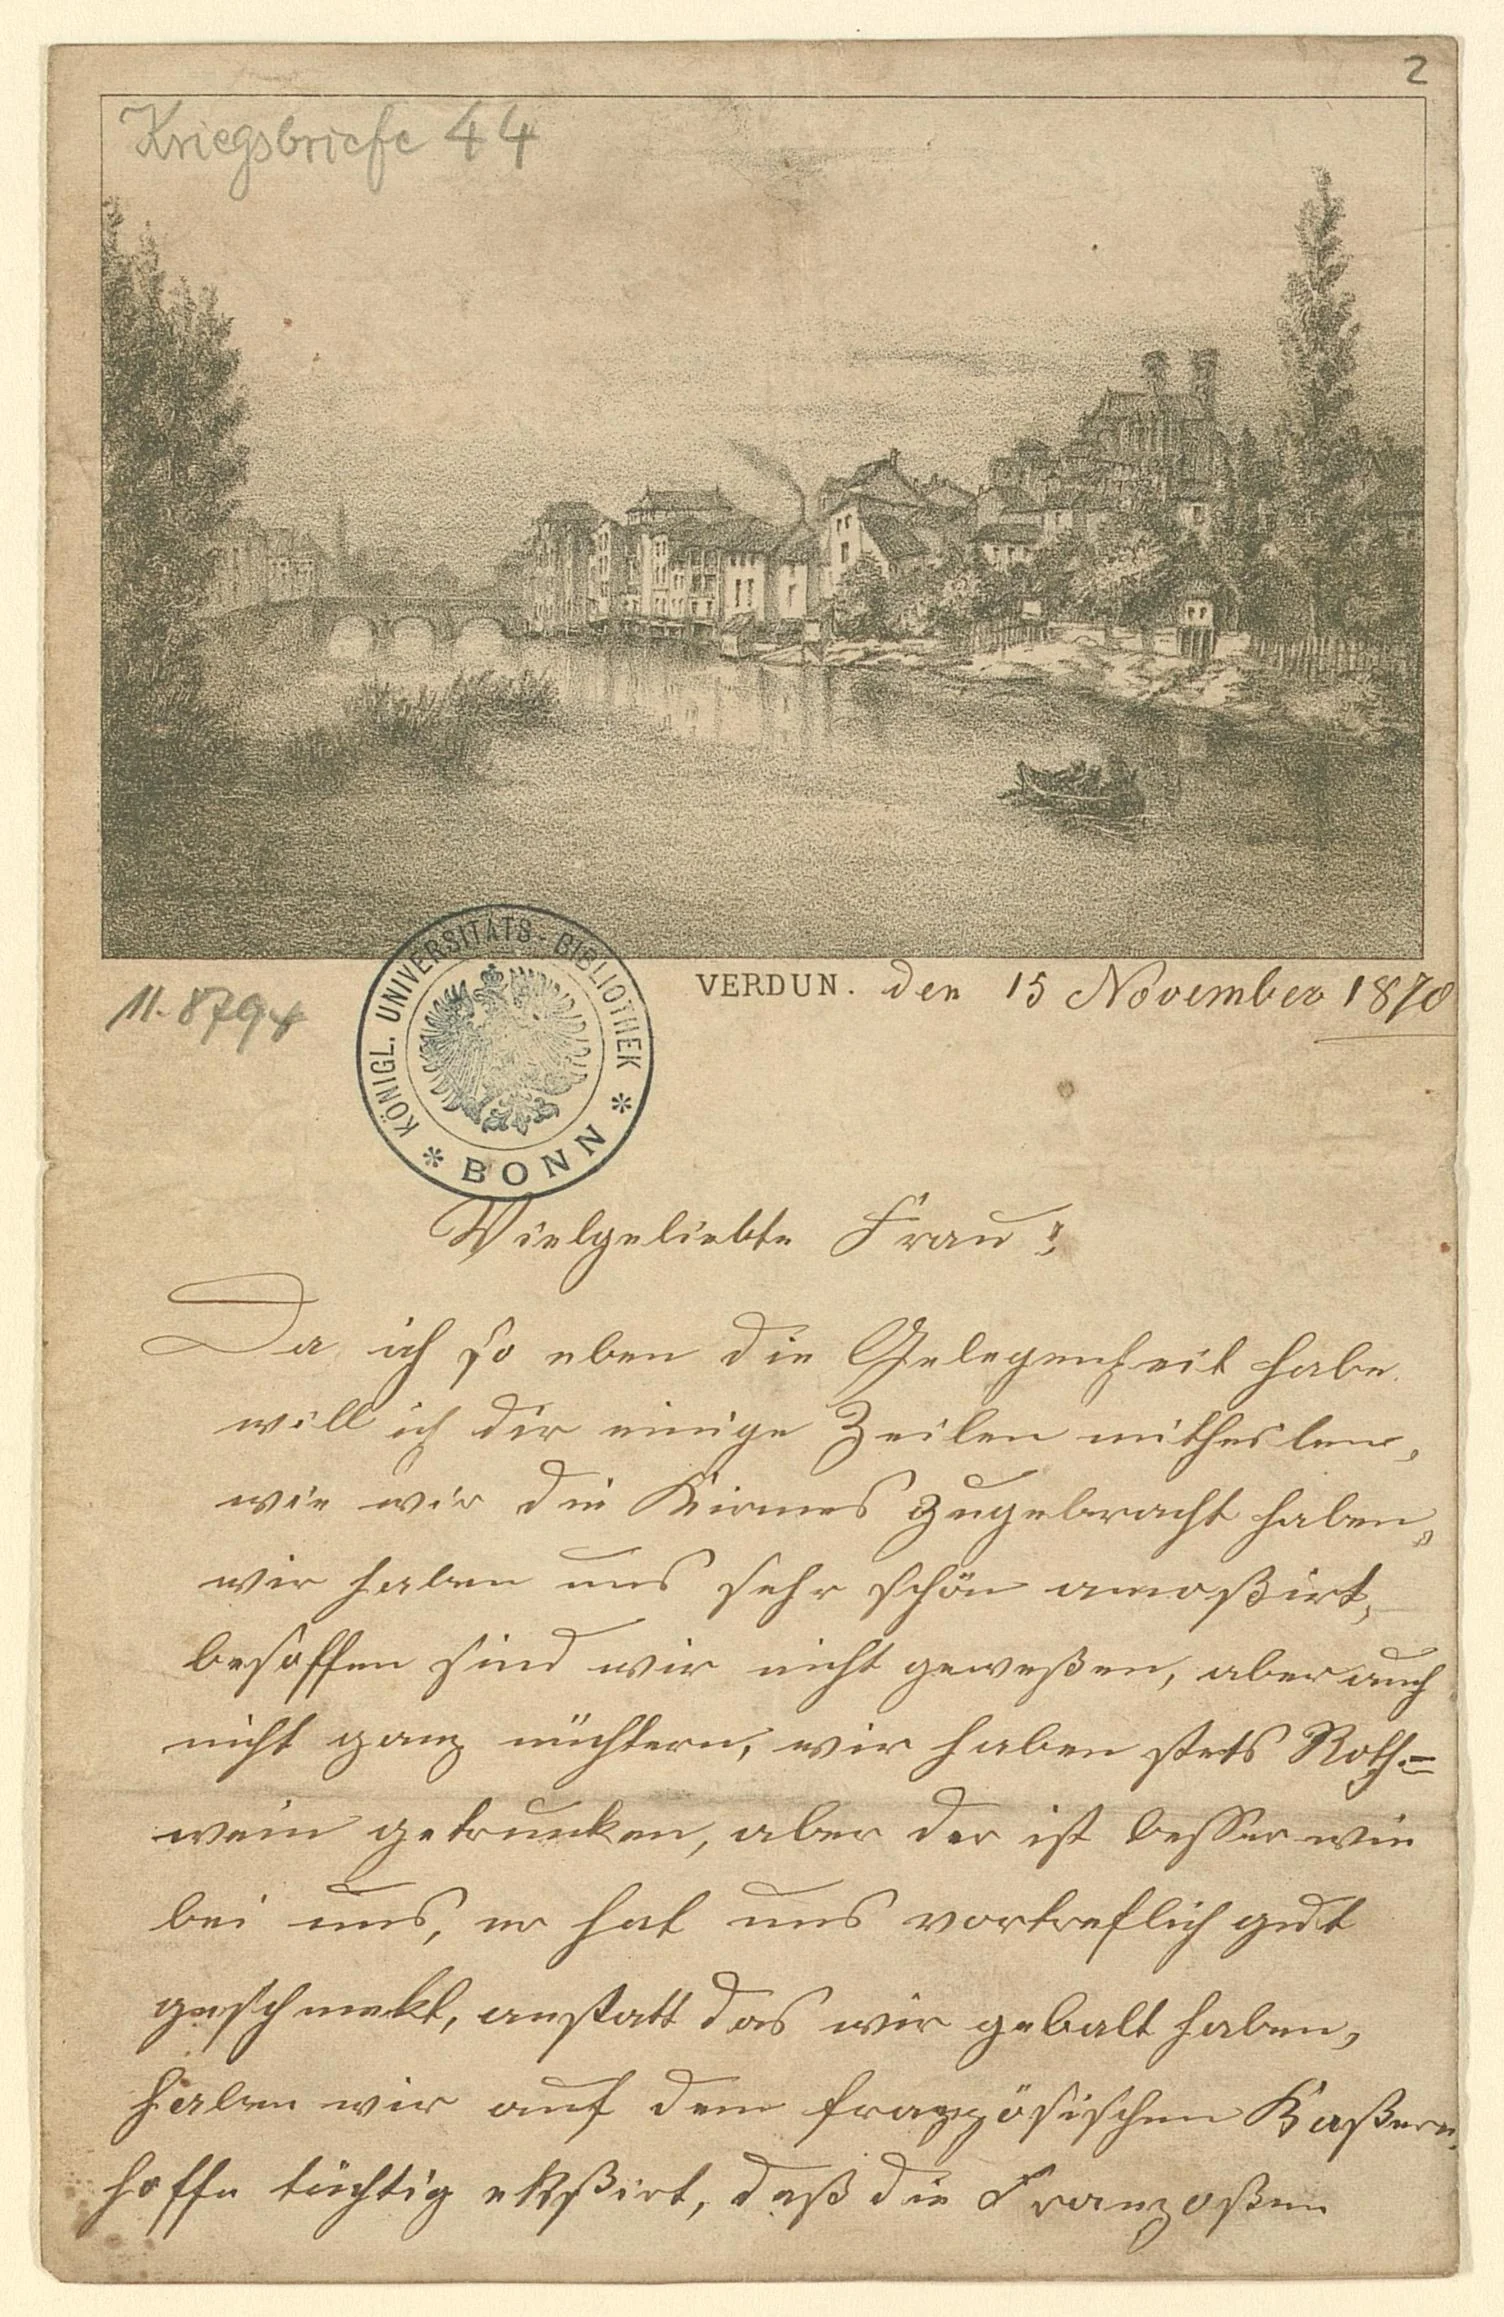 2
Kriegsbriefe 44
KÖNIGL. UNIVERSITÄTS-BIBLIOTHEK * BONN *
VERDUN. den 15 November 1870
11.8794
Vielgeliebte Frau!
Da ich so eben die Gelegenheit habe
will ich dir einige Zeilen mitheilen,
wie wir die Kirmes zugebracht haben,
wir haben uns sehr schön amoßirt,
besoffen sind wir nicht geweßen, aber auch
nicht ganz nüchtern, wir haben stets Roth-
wein getrunken, aber der ist besser wie
bei uns, er hat uns vortreflich gut
geschmekt, anstatt das wir gebalt haben,
haben wir auf dem französischen Kaßern
hoffe tüchtig ekßirt, daß die Franzoßen